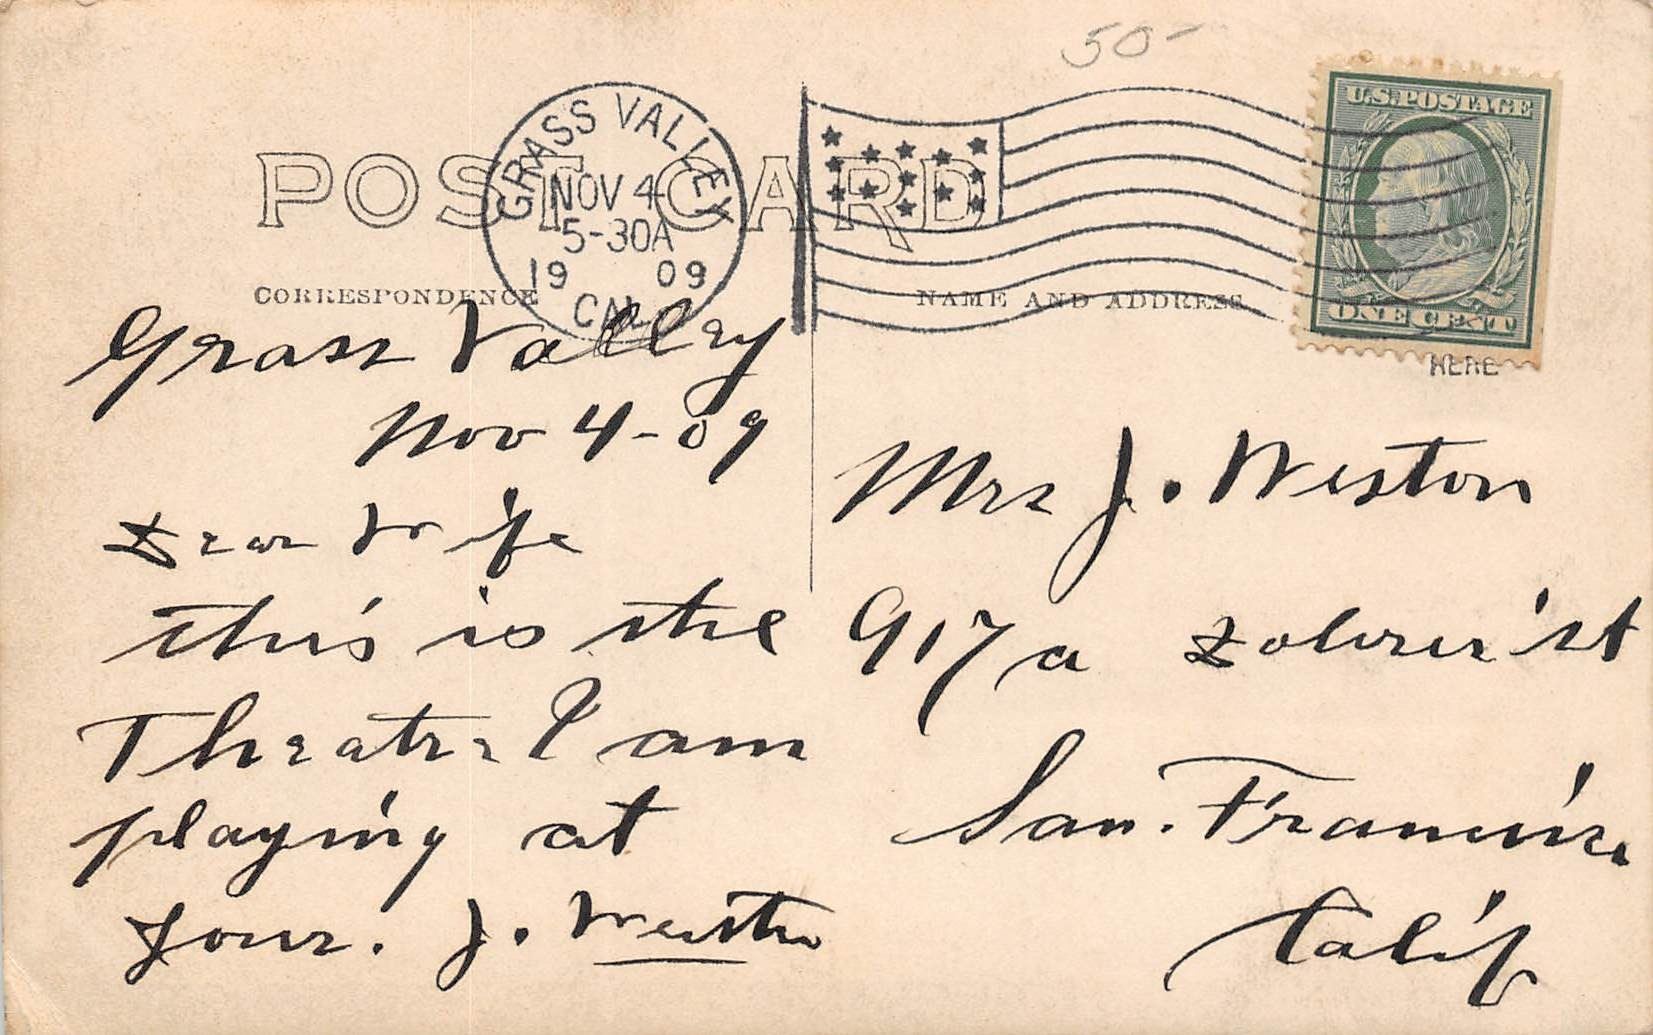 50-
POST CARD
GRASS VALLEY
NOV 4
5-30A
1909
CAL.
U.S. POSTAGE
ONE CENT
HERE
CORRESPONDENCE
NAME AND ADDRESS
Grass Valley
Nov 4-09
Dear Wife
this is the
Theatre I am
playing at
Your. J. Weston
Mrs J. Weston
917a st
San. Francisco
Calif